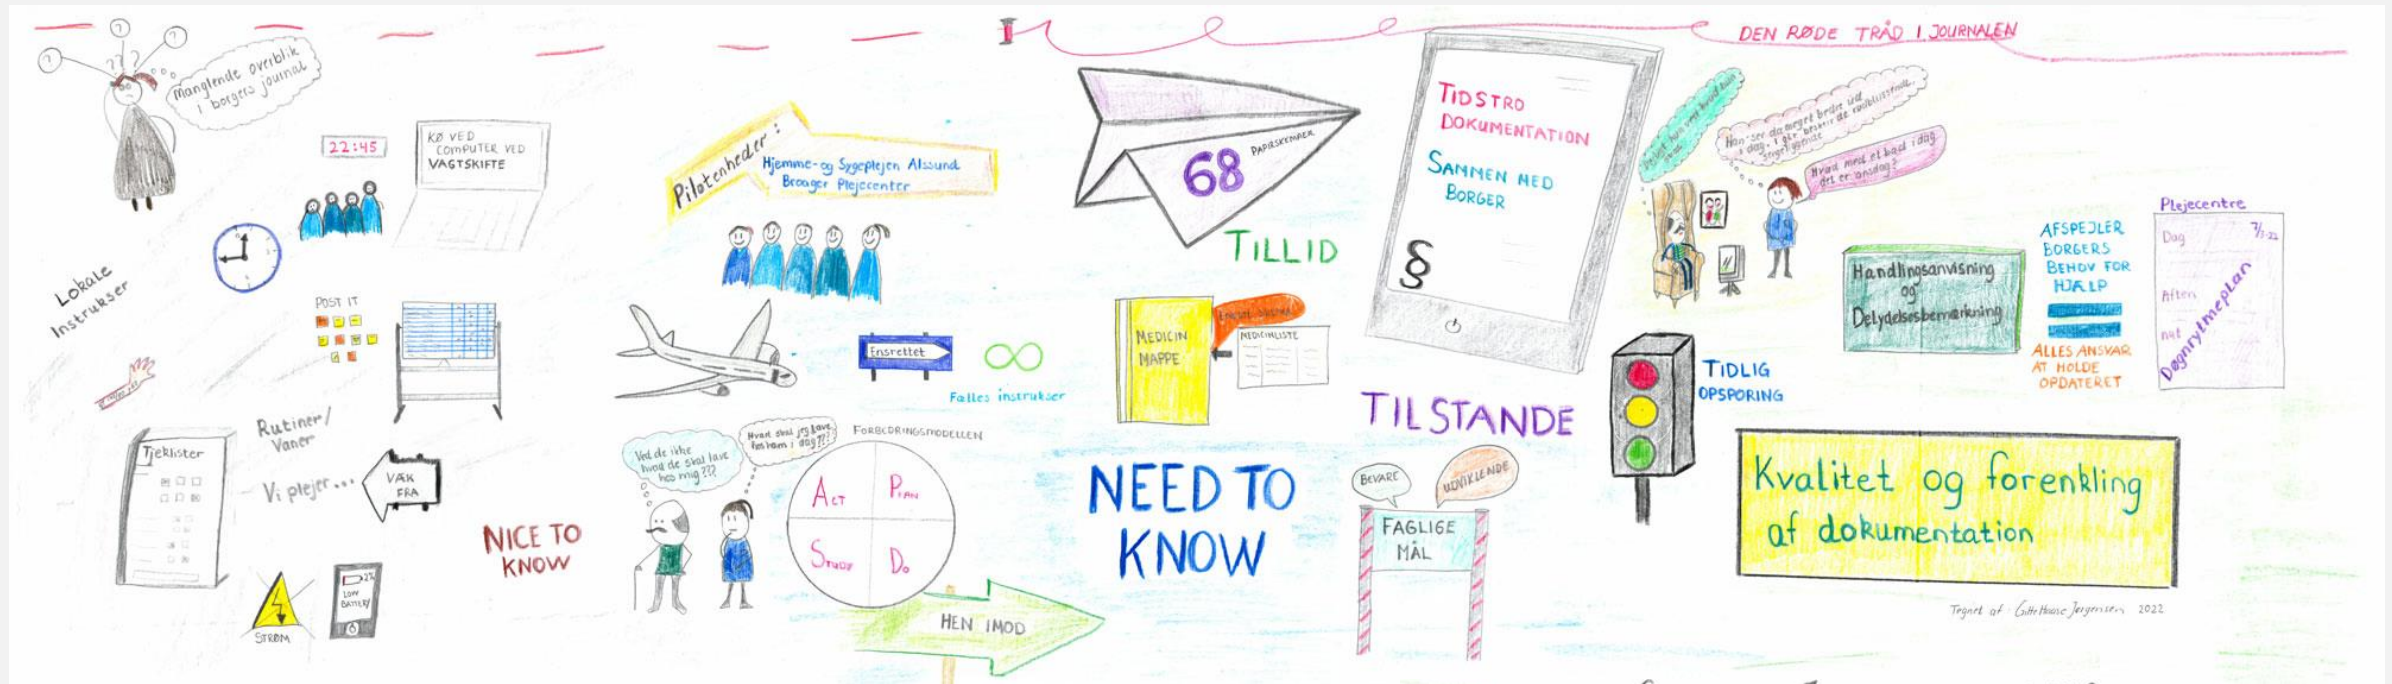 ?
?
?
? ? ?
Manglende overblik
i borgers journal
22:45
KØ VED
COMPUTER VED
VAGTSKIFTE
Lokale
Instrukser
POST IT
Rutiner/
Vaner
Tjeklister
Vi plejer...
VÆK
FRA
STRØM
2%
LOW
BATTERY
NICE TO
KNOW
Pilotenheder:
Hjemme-og Sygeplejen Alssund
Broager Plejecenter
Ensrettet
Fælles instrukser
Ved de ikke
hvad de skal lave
hos mig ???
Hvad skal jeg lave
hos ham i dag???
FORBEDRINGSMODELLEN
ACT
PLAN
STUDY
DO
HEN IMOD
68
PAPIRSKEMAER
TILLID
MEDICIN
MAPPE
MEDICINLISTE
NEED TO
KNOW
DEN RØDE TRÅD I JOURNALEN
TIDSTRO
DOKUMENTATION
SAMMEN MED
BORGER
§
TILSTANDE
BEVARE
UDVIKLENDE
FAGLIGE
MÅL
Han ser da meget bedre ud
i dag, i går
Hvad med et bad i dag
det er onsdag?
TIDLIG
OPSPORING
Handlingsanvisning
og
Delydelsesbemærkning
AFSPEJLER
BORGERS
BEHOV FOR
HJÆLP
ALLES ANSVAR
AT HOLDE
OPDATERET
Plejecentre
Dag
7/3-22
Aften
nat
Døgnrytmeplan
Kvalitet og forenkling
af dokumentation
Tegnet af: Gitte Haase Jørgensen 2022